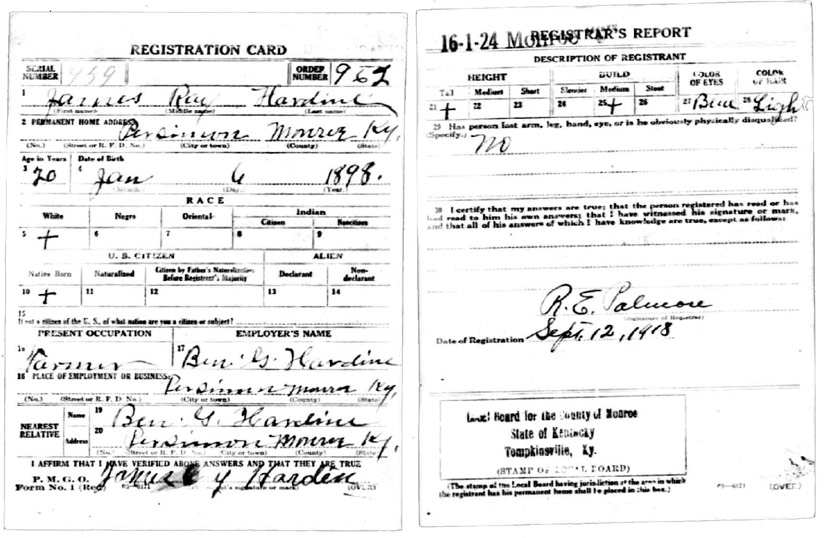 REGISTRATION CARD
SERIAL NUMBER 439 ORDER NUMBER 962
1 James Ray Hardine
(First name) (Middle name) (Last name)
2 PERMANENT HOME ADDRESS: Persimon Monroe Ky.
(No.) (Street or R. F. D. No.) (City or town) (County) (State)
Age in Years Date of Birth
3 20 4 Jan 6 1898.
(Month.) (Day.) (Year.)
RACE
White Negro Oriental Indian
Citizen Noncitizen
5 + 6 7 8 9
U. S. CITIZEN ALIEN
Native Born Naturalized Citizen by Father's Naturalization Before Registrant's Majority Declarant Non-declarant
10 + 11 12 13 14
15
If not a citizen of the U. S., of what nation are you a citizen or subject?
PRESENT OCCUPATION EMPLOYER'S NAME
16 Farmer 17 Ben. G. Hardine
18 PLACE OF EMPLOYMENT OR BUSINESS: Persimon Monroe Ky.
(No.) (Street or R. F. D. No.) (City or town) (County) (State)
NEAREST RELATIVE Name 19 Ben. G. Hardine
Address 20 Persimon Monroe Ky.
(No.) (Street or R. F. D. No.) (City or town) (County) (State)
I AFFIRM THAT I HAVE VERIFIED ABOVE ANSWERS AND THAT THEY ARE TRUE
P. M. G. O.
Form No. 1 (Red) Harden (OVER)
REGISTRAR'S REPORT
16-1-24 Monroe
DESCRIPTION OF REGISTRANT
HEIGHT BUILD COLOR OF EYES COLOR OF HAIR
Tall Medium Short Slender Medium Stout
21 + 22 23 24 25 + 26 27 Blue 28 Light
29 Has person lost arm, leg, hand, eye, or is he obviously physically disqualified?
(Specify.) No
30 I certify that my answers are true; that the person registered has read or has
had read to him his own answers; that I have witnessed his signature or mark,
and that all of his answers of which I have knowledge are true, except as follows:
R. E. Palmore
(Signature of Registrar)
Date of Registration Sept. 12, 1918
Local Board for the County of Monroe
State of Kentucky
Tompkinsville, Ky.
(STAMP OF LOCAL BOARD)
(The stamp of the Local Board having jurisdiction of the area in which
the registrant has his permanent home shall be placed in this box.)
(OVER)